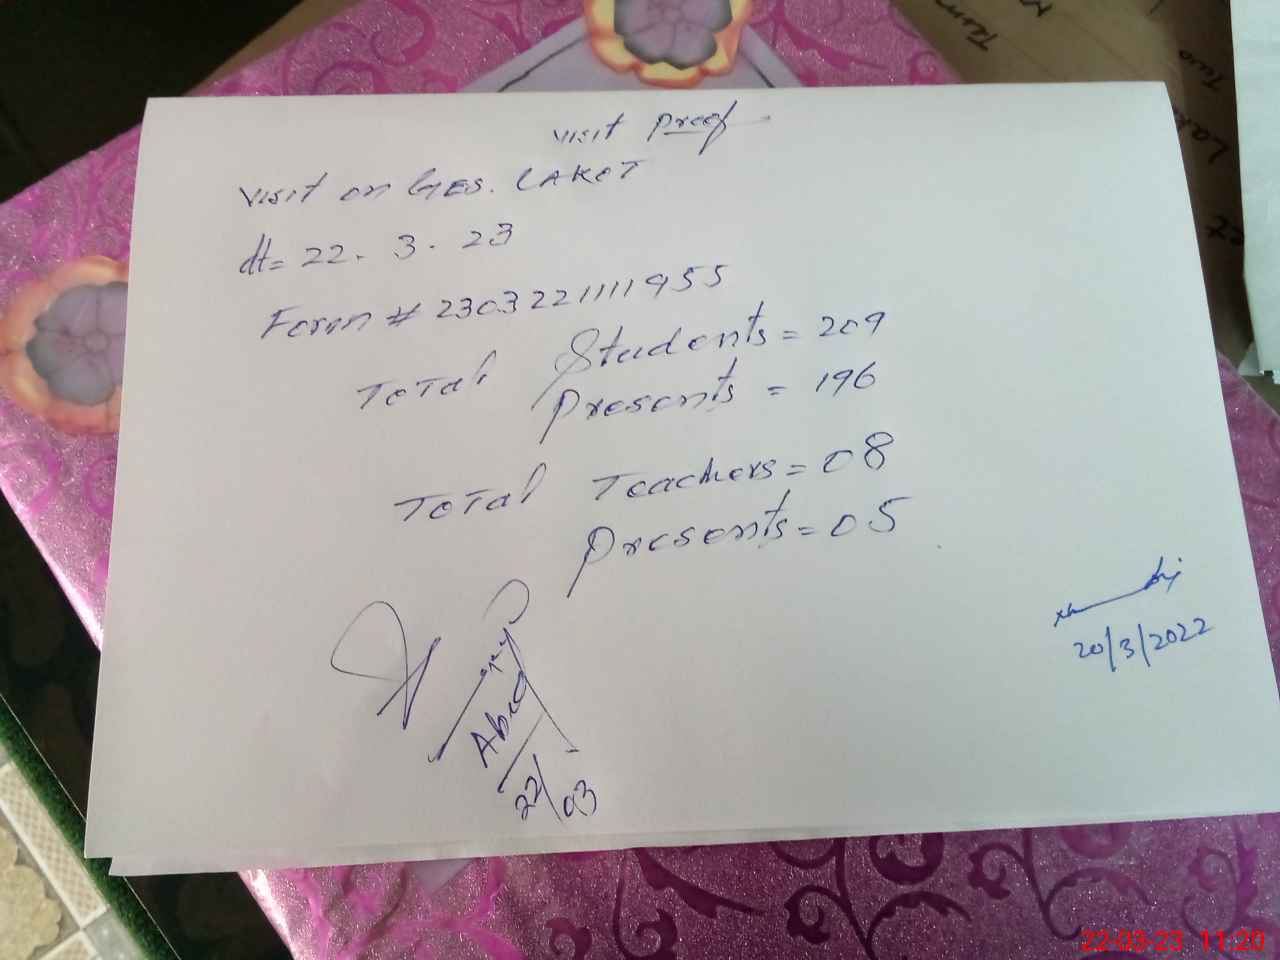 visit proof
visit on GES. LAKOT
dt= 22. 3. 23
Form # 2303221111955
Total Students = 209
Presents = 196
Total Teachers = 08
Presents = 05
20/3/2022
22/03
22-03-23 11:20
Two